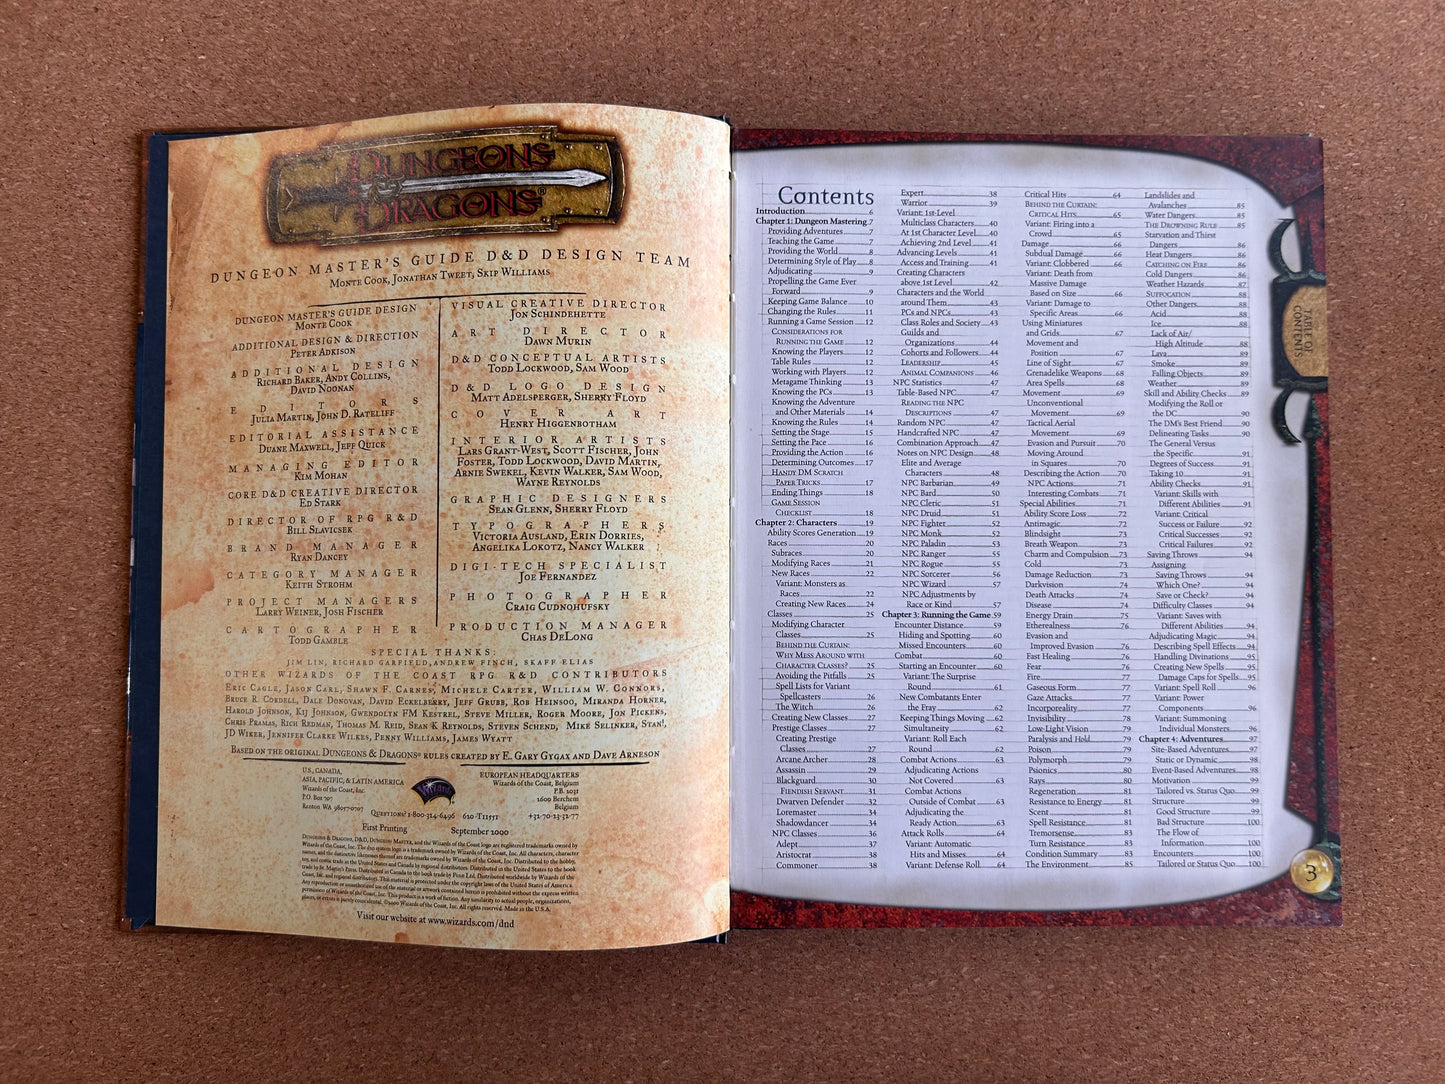 DUNGEONS
& DRAGONS®
DUNGEON MASTER'S GUIDE D&D DESIGN TEAM
MONTE COOK, JONATHAN TWEET, SKIP WILLIAMS
DUNGEON MASTER'S GUIDE DESIGN
MONTE COOK
ADDITIONAL DESIGN & DIRECTION
PETER ADKISON
ADDITIONAL DESIGN
RICHARD BAKER, ANDY COLLINS,
DAVID NOONAN
EDITORS
JULIA MARTIN, JOHN D. RATELIFF
EDITORIAL ASSISTANCE
DUANE MAXWELL, JEFF QUICK
MANAGING EDITOR
KIM MOHAN
CORE D&D CREATIVE DIRECTOR
ED STARK
DIRECTOR OF RPG R&D
BILL SLAVICSEK
BRAND MANAGER
RYAN DANCEY
CATEGORY MANAGER
KEITH STROHM
PROJECT MANAGERS
LARRY WEINER, JOSH FISCHER
CARTOGRAPHER
TODD GAMBLE
VISUAL CREATIVE DIRECTOR
JON SCHINDEHETTE
ART DIRECTOR
DAWN MURIN
D&D CONCEPTUAL ARTISTS
TODD LOCKWOOD, SAM WOOD
D&D LOGO DESIGN
MATT ADELSPERGER, SHERRY FLOYD
COVER ART
HENRY HIGGENBOTHAM
INTERIOR ARTISTS
LARS GRANT-WEST, SCOTT FISCHER, JOHN
FOSTER, TODD LOCKWOOD, DAVID MARTIN,
ARNIE SWEKEL, KEVIN WALKER, SAM WOOD,
WAYNE REYNOLDS
GRAPHIC DESIGNERS
SEAN GLENN, SHERRY FLOYD
TYPOGRAPHERS
VICTORIA AUSLAND, ERIN DORRIES,
ANGELIKA LOKOTZ, NANCY WALKER
DIGI-TECH SPECIALIST
JOE FERNANDEZ
PHOTOGRAPHER
CRAIG CUDNOHUFSKY
PRODUCTION MANAGER
CHAS DELONG
SPECIAL THANKS:
JIM LIN, RICHARD GARFIELD, ANDREW FINCH, SKAFF ELIAS
OTHER WIZARDS OF THE COAST RPG R&D CONTRIBUTORS
ERIC CAGLE, JASON CARL, SHAWN F. CARNES, MICHELE CARTER, WILLIAM W. CONNORS,
BRUCE R. CORDELL, DALE DONOVAN, DAVID ECKELBERRY, JEFF GRUBB, ROB HEINSOO, MIRANDA HORNER,
HAROLD JOHNSON, KIJ JOHNSON, GWENDOLYN FM KESTREL, STEVE MILLER, ROGER MOORE, JON PICKENS,
CHRIS PRAMAS, RICH REDMAN, THOMAS M. REID, SEAN K REYNOLDS, STEVEN SCHEND, MIKE SELINKER, STAN!,
JD WIKER, JENNIFER CLARKE WILKES, PENNY WILLIAMS, JAMES WYATT
BASED ON THE ORIGINAL DUNGEONS & DRAGONS® RULES CREATED BY E. GARY GYGAX AND DAVE ARNESON
U.S., CANADA,
ASIA, PACIFIC, & LATIN AMERICA
Wizards of the Coast, Inc.
P.O. Box 707
Renton WA 98057-0707
Wizards
EUROPEAN HEADQUARTERS
Wizards of the Coast, Belgium
P.B. 2031
2600 Berchem
Belgium
+32-70-23-32-77
QUESTIONS? 1-800-324-6496
620-T11551
First Printing September 2000
DUNGEONS & DRAGONS, D&D, DUNGEON MASTER, and the Wizards of the Coast logo are registered trademarks owned by
Wizards of the Coast, Inc. The d20 system logo is a trademark owned by Wizards of the Coast, Inc. All characters, character
names, and the distinctive likenesses thereof are trademarks owned by Wizards of the Coast, Inc. Distributed to the hobby,
toy, and comic trade in the United States and Canada by regional distributors. Distributed in the United States to the book
trade by St. Martin's Press. Distributed in Canada to the book trade by Fenn Ltd. Distributed worldwide by Wizards of the
Coast, Inc. and regional distributors. This material is protected under the copyright laws of the United States of America.
Any reproduction or unauthorized use of the material or artwork contained herein is prohibited without the express written
permission of Wizards of the Coast, Inc. This product is a work of fiction. Any similarity to actual people, organizations,
places, or events is purely coincidental. ©2000 Wizards of the Coast, Inc. All rights reserved. Made in the U.S.A.
Visit our website at www.wizards.com/dnd
Contents
Introduction 6
Chapter 1: Dungeon Mastering 7
Providing Adventures 7
Teaching the Game 7
Providing the World 8
Determining Style of Play 8
Adjudicating 9
Propelling the Game Ever
Forward 9
Keeping Game Balance 10
Changing the Rules 11
Running a Game Session 12
CONSIDERATIONS FOR
RUNNING THE GAME 12
Knowing the Players 12
Table Rules 12
Working with Players 12
Metagame Thinking 13
Knowing the PCs 13
Knowing the Adventure
and Other Materials 14
Knowing the Rules 14
Setting the Stage 15
Setting the Pace 16
Providing the Action 16
Determining Outcomes 17
HANDY DM SCRATCH
PAPER TRICKS 17
Ending Things 18
GAME SESSION
CHECKLIST 18
Chapter 2: Characters 19
Ability Scores Generation 19
Races 20
Subraces 20
Modifying Races 21
New Races 22
Variant: Monsters as
Races 22
Creating New Races 24
Classes 25
Modifying Character
Classes 25
BEHIND THE CURTAIN:
WHY MESS AROUND WITH
CHARACTER CLASSES? 25
Avoiding the Pitfalls 25
Spell Lists for Variant
Spellcasters 26
The Witch 26
Creating New Classes 27
Prestige Classes 27
Creating Prestige
Classes 27
Arcane Archer 28
Assassin 29
Blackguard 30
FIENDISH SERVANT 31
Dwarven Defender 32
Loremaster 34
Shadowdancer 34
NPC Classes 36
Adept 37
Aristocrat 38
Commoner 38
Expert 38
Warrior 39
Variant: 1st-Level
Multiclass Characters 40
At 1st Character Level 40
Achieving 2nd Level 41
Advancing Levels 41
Access and Training 41
Creating Characters
above 1st Level 42
Characters and the World
around Them 43
PCs and NPCs 43
Class Roles and Society 43
Guilds and
Organizations 44
Cohorts and Followers 44
LEADERSHIP 45
ANIMAL COMPANIONS 46
NPC Statistics 47
Table-Based NPC 47
READING THE NPC
DESCRIPTIONS 47
Random NPC 47
Handcrafted NPC 47
Combination Approach 47
Notes on NPC Design 48
Elite and Average
Characters 48
NPC Barbarian 49
NPC Bard 50
NPC Cleric 51
NPC Druid 51
NPC Fighter 52
NPC Monk 52
NPC Paladin 53
NPC Ranger 55
NPC Rogue 55
NPC Sorcerer 56
NPC Wizard 57
NPC Adjustments by
Race or Kind 57
Chapter 3: Running the Game 59
Encounter Distance 59
Hiding and Spotting 60
Missed Encounters 60
Combat 60
Starting an Encounter 60
Variant: The Surprise
Round 61
New Combatants Enter
the Fray 62
Keeping Things Moving 62
Simultaneity 62
Variant: Roll Each
Round 62
Combat Actions 63
Adjudicating Actions
Not Covered 63
Combat Actions
Outside of Combat 63
Adjudicating the
Ready Action 63
Attack Rolls 64
Variant: Automatic
Hits and Misses 64
Variant: Defense Roll 64
Critical Hits 64
BEHIND THE CURTAIN:
CRITICAL HITS 65
Variant: Firing into a
Crowd 65
Damage 66
Subdual Damage 66
Variant: Clobbered 66
Variant: Death from
Massive Damage
Based on Size 66
Variant: Damage to
Specific Areas 66
Using Miniatures
and Grids 67
Movement and
Position 67
Line of Sight 67
Grenadelike Weapons 68
Area Spells 68
Movement 69
Unconventional
Movement 69
Tactical Aerial
Movement 69
Evasion and Pursuit 70
Moving Around
in Squares 70
Describing the Action 70
NPC Actions 71
Interesting Combats 71
Special Abilities 71
Ability Score Loss 72
Antimagic 72
Blindsight 73
Breath Weapon 73
Charm and Compulsion 73
Cold 73
Damage Reduction 73
Darkvision 74
Death Attacks 74
Disease 74
Energy Drain 75
Etherealness 76
Evasion and
Improved Evasion 76
Fast Healing 76
Fear 76
Fire 77
Gaseous Form 77
Gaze Attacks 77
Incorporeality 77
Invisibility 78
Low-Light Vision 79
Paralysis and Hold 79
Poison 79
Polymorph 79
Psionics 80
Rays 80
Regeneration 81
Resistance to Energy 81
Scent 81
Spell Resistance 81
Tremorsense 83
Turn Resistance 83
Condition Summary 83
The Environment 85
Landslides and
Avalanches 85
Water Dangers 85
THE DROWNING RULE 85
Starvation and Thirst
Dangers 86
Heat Dangers 86
CATCHING ON FIRE 86
Cold Dangers 86
Weather Hazards 87
SUFFOCATION 88
Other Dangers 88
Acid 88
Ice 88
Lack of Air/
High Altitude 88
Lava 89
Smoke 89
Falling Objects 89
Weather 89
Skill and Ability Checks 89
Modifying the Roll or
the DC 90
The DM's Best Friend 90
Delineating Tasks 90
The General Versus
the Specific 91
Degrees of Success 91
Taking 10 91
Ability Checks 91
Variant: Skills with
Different Abilities 91
Variant: Critical
Success or Failure 92
Critical Successes 92
Critical Failures 92
Saving Throws 94
Assigning
Saving Throws 94
Which One? 94
Save or Check? 94
Difficulty Classes 94
Variant: Saves with
Different Abilities 94
Adjudicating Magic 94
Describing Spell Effects 94
Handling Divinations 95
Creating New Spells 95
Damage Caps for Spells 95
Variant: Spell Roll 96
Variant: Power
Components 96
Variant: Summoning
Individual Monsters 96
Chapter 4: Adventures 97
Site-Based Adventures 97
Static or Dynamic 98
Event-Based Adventures 98
Motivation 99
Tailored vs. Status Quo 99
Structure 99
Good Structure 99
Bad Structure 100
The Flow of
Information 100
Encounters 100
Tailored or Status Quo 100
TABLE OF
CONTENTS
3